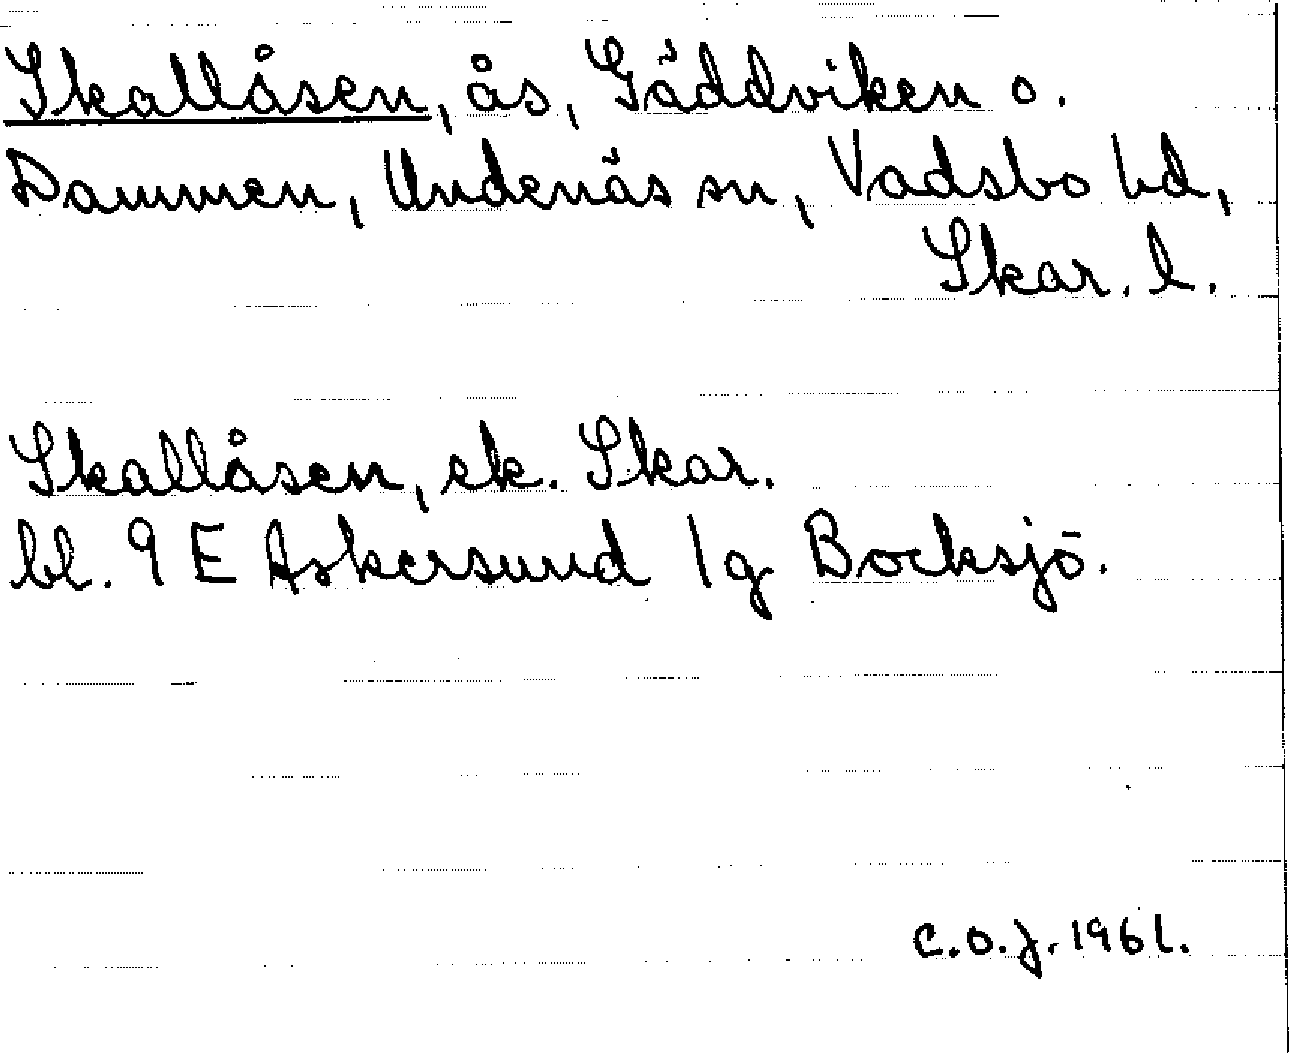 Skallåsen, ås, Gäddviken o.
Dammen, Undenäs sn, Vadsbo hd,
Skar. l.
Skallåsen, ek. Skar.
bl. 9 E Askersund 1g Bocksjö.
C.O.J. 1961.